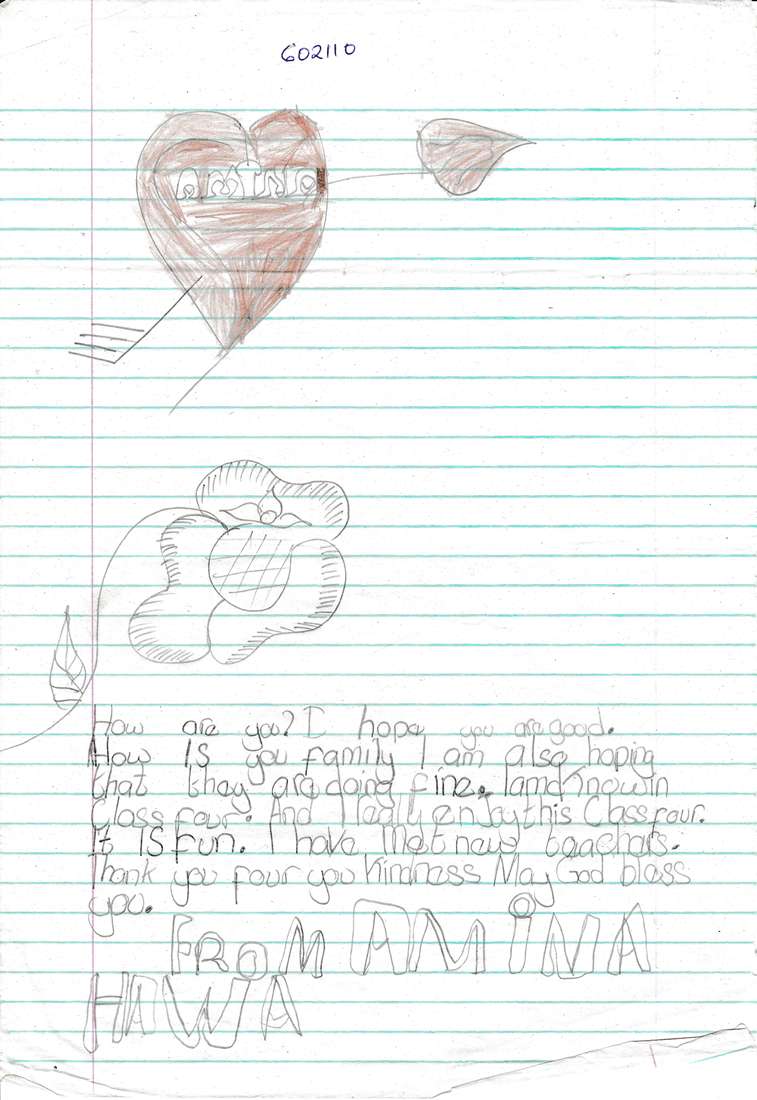 602110
AMINA
How are you? I hope you are good.
How Is you family I am also hoping
that they are doing fine. Iam Know in
Class four. And I really enjoy this Class four.
It IS fun. I have met new teachers.
Thank you four you Kindness May God bless
you.
FROM AMINA
HAWA